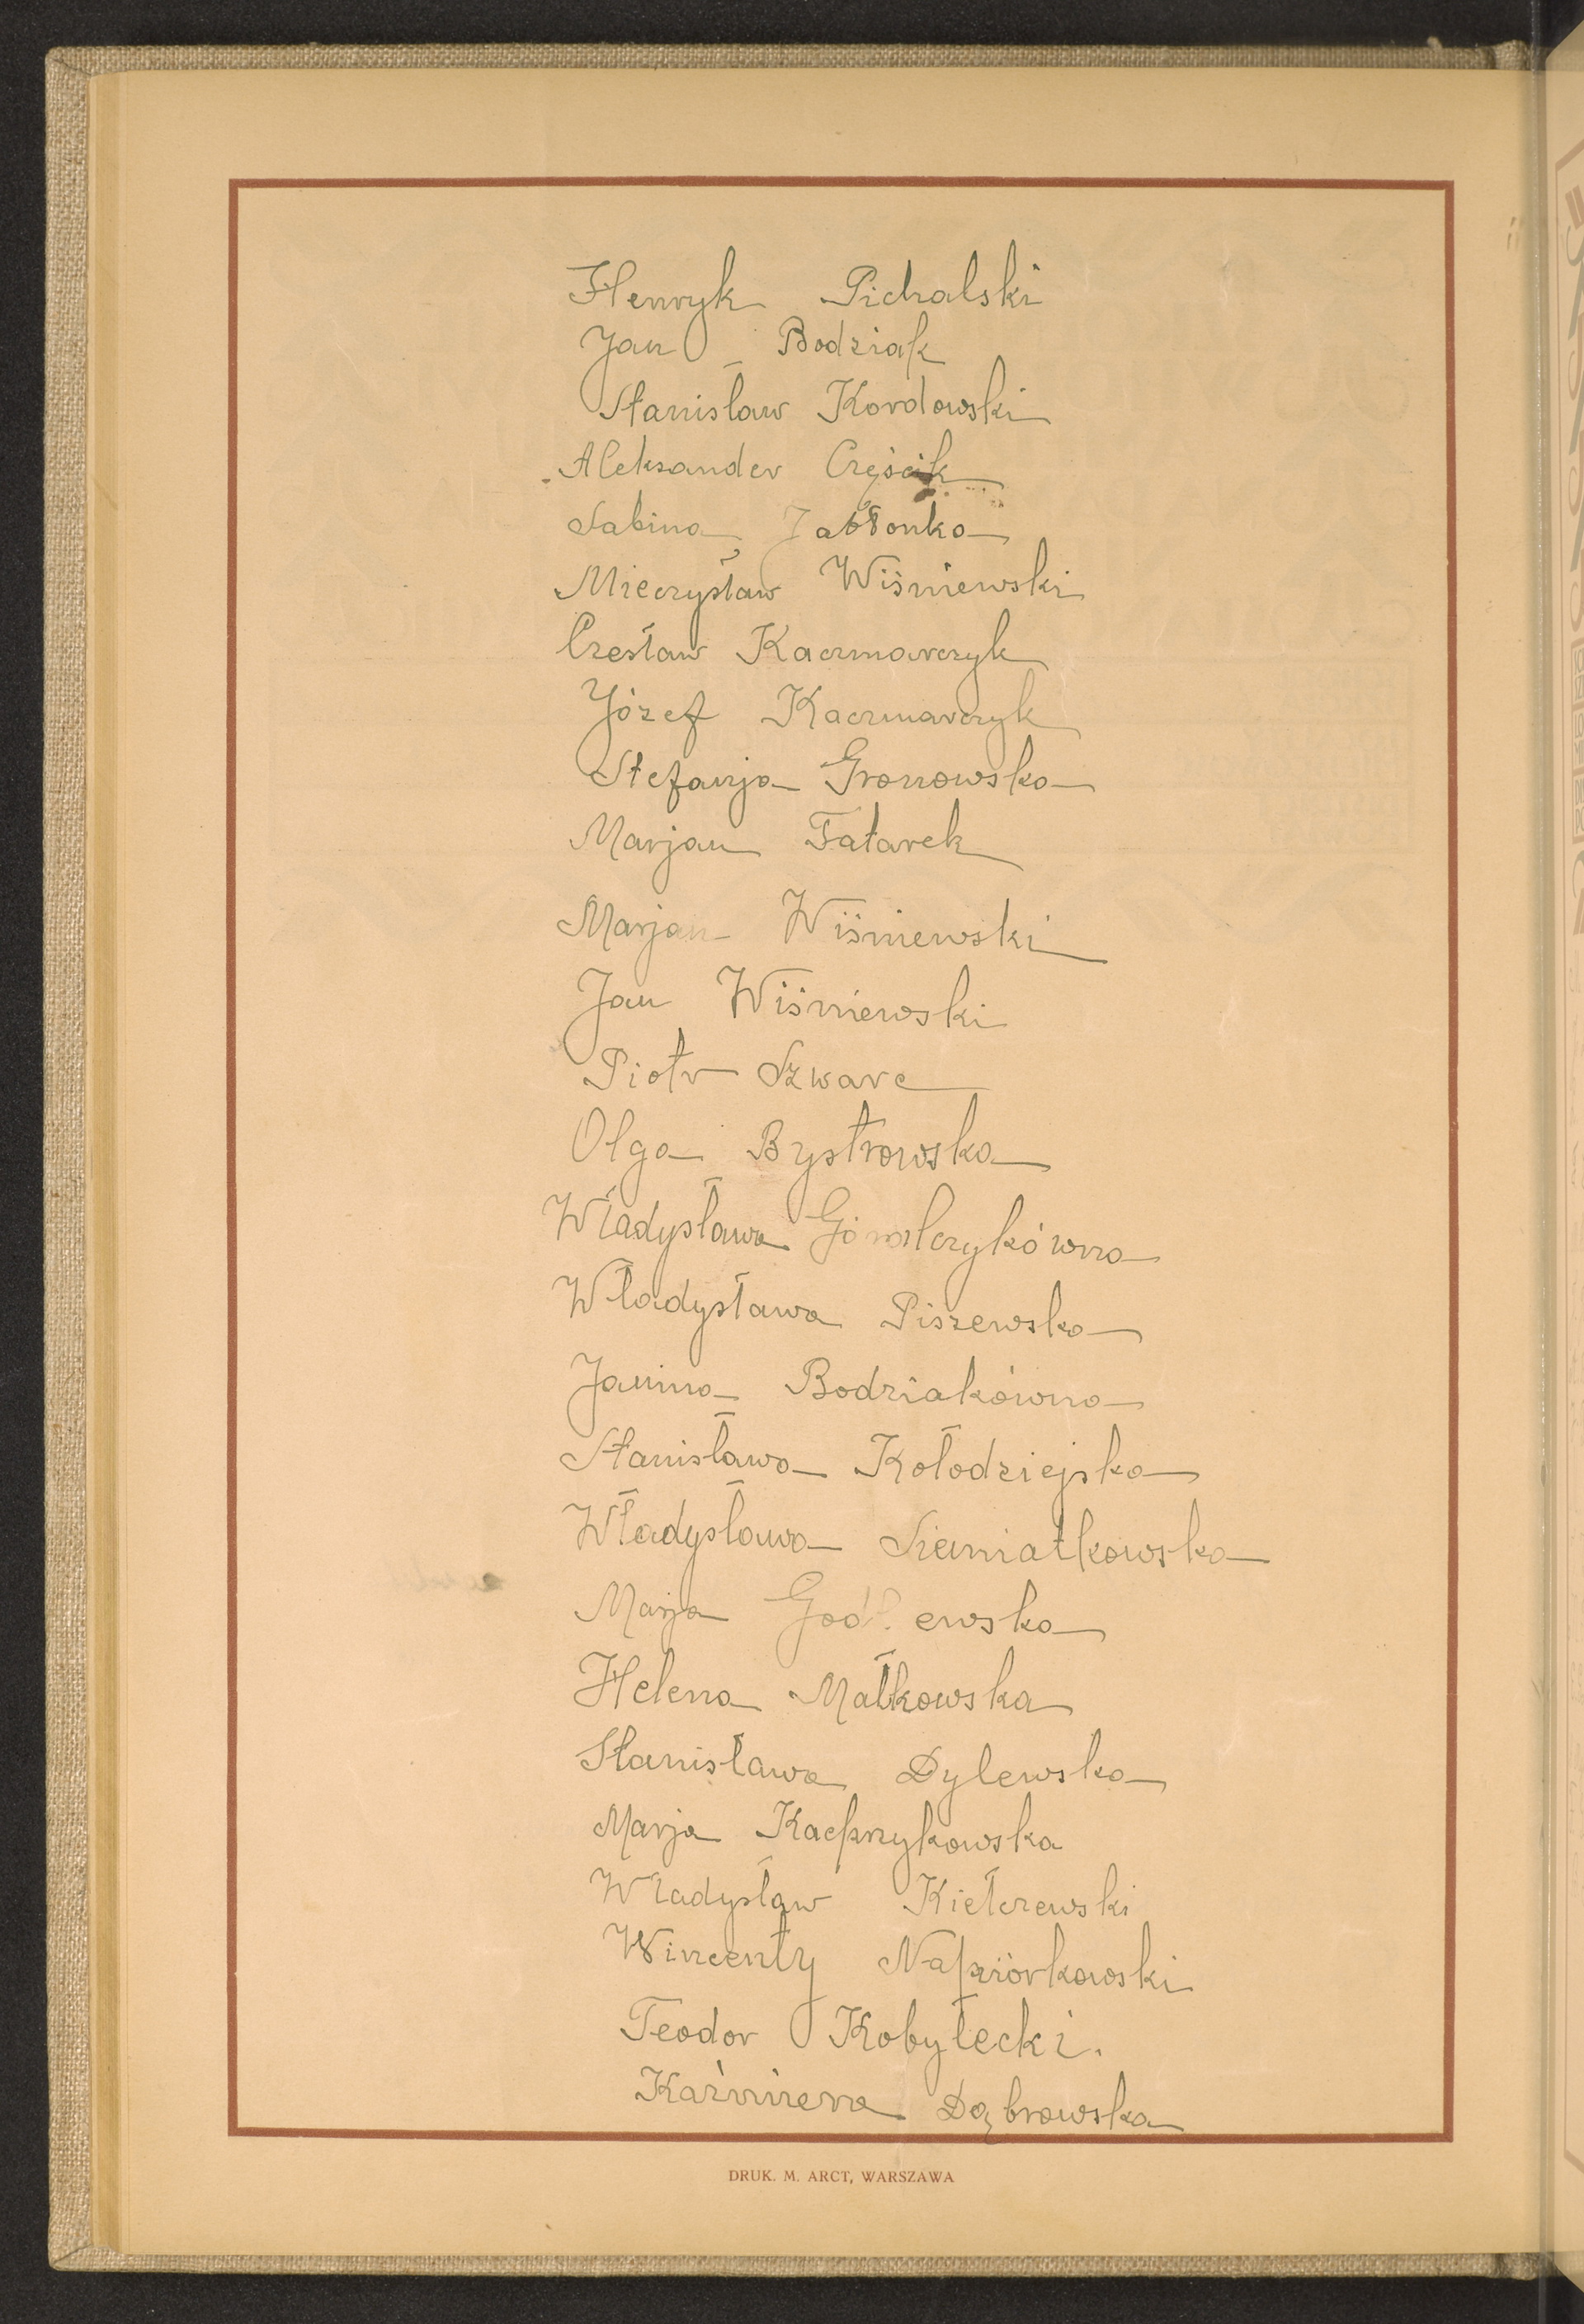 Henryk Pichalski
Jan Bodziak
Stanisław Kordowski
Aleksander Częścik
Sabina Jabłonka
Mieczysław Wiśniewski
Czesław Kaczmarczyk
Józef Kaczmarczyk
Stefanja Gronowska
Marjan Fatarek
Marjan Wiśniewski
Jan Wiśniewski
Piotr Szwarc
Olga Bystrowska
Władysława Góralczykówna
Władysława Piszewska
Janina Bodziakówna
Stanisława Kołodziejska
Władysława Siemiatkowska
Marja
Helena Małkowska
Stanisława Dylewska
Marja Kacprzykowska
Władysław Kiełczewski
Wincenty Napiórkowski
Teodor Kobyłecki.
Kaźmiera Dąbrowska
DRUK. M. ARCT, WARSZAWA